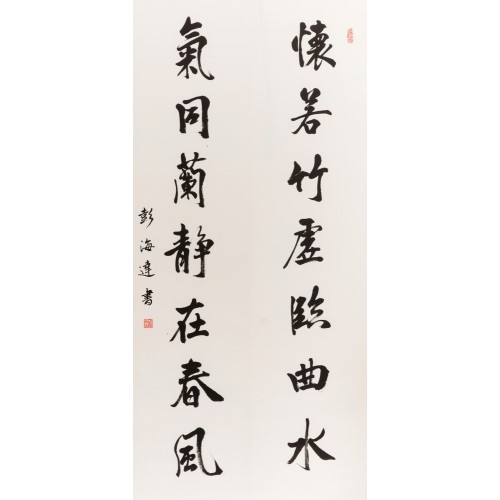 懷若竹虛臨曲水
氣同蘭静在春風
彭海達書